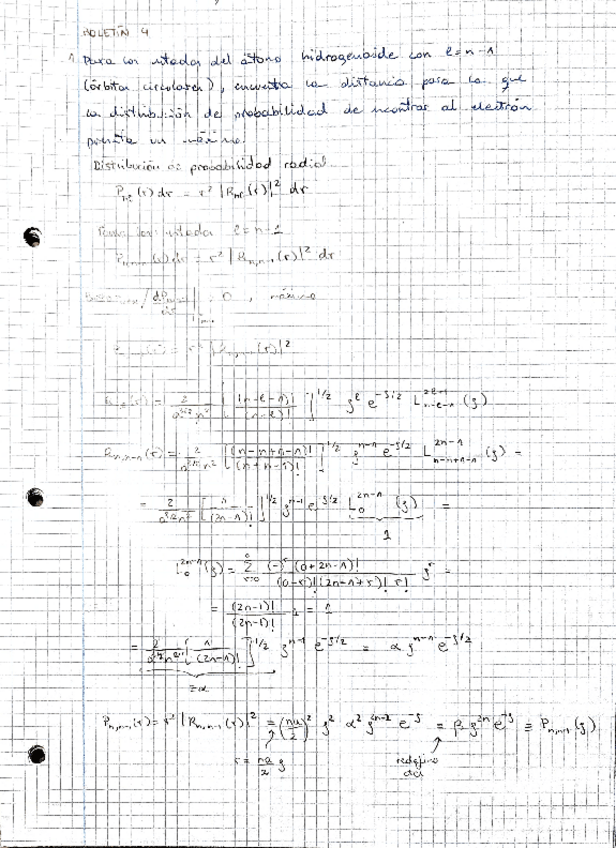 BOLETÍN 4
1. Para los estados del átomo hidrogenoide con l = n-1
(órbitas circulares), encuentra la distancia para la que
la distribución de probabilidad de encontrar al electrón
presenta un máximo.
Distribución de probabilidad radial
P_{nl}(r) dr = r² |R_{nl}(r)|² dr
Para los estados l = n-1
P_{n,n-1}(r) dr = r² |R_{n,n-1}(r)|² dr
= 0, máximo
= r² |R_{n,n-1}(r)|²
R_{nl}(r) = 2/(a^{3/2} n²) [(n-l-1)!/(n+l)!]^{1/2} ρ^l e^{-ρ/2} L_{n-l-1}^{2l+1}(ρ)
R_{n,n-1}(r) = 2/(a^{3/2} n²) [(n-n+1-1)!/(n+n-1)!]^{1/2} ρ^{n-1} e^{-ρ/2} L_{n-n+1-1}^{2n-1}(ρ) =
= 2/(a^{3/2} n²) [1/(2n-1)!]^{1/2} ρ^{n-1} e^{-ρ/2} L_0^{2n-1}(ρ) =
1
L_0^{2n-1}(ρ) = Σ_{r=0}^{0} (-)^r (0+2n-1)! / ((0-r)! (2n-1+r)! r!) ρ^r =
= (2n-1)!/(2n-1)! 1 = 1
= 2/(a^{3/2} n²) [1/(2n-1)!]^{1/2} ρ^{n-1} e^{-ρ/2} = α ρ^{n-1} e^{-ρ/2}
≡ α
P_{n,n-1}(r) = r² |R_{n,n-1}(r)|² = (na/2)² ρ² α² ρ^{2n-2} e^{-ρ} = β ρ^{2n} e^{-ρ} ≡ P_{n,n-1}(ρ)
r = na/2 ρ
redefino